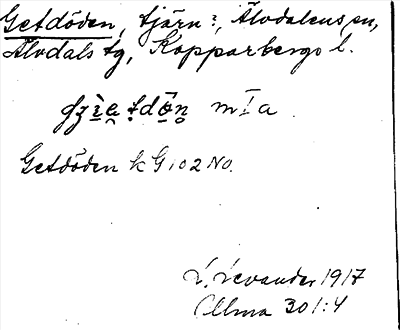 Getdöden, tjärn?, Älvdalens sn,
Älvdals tg, Kopparbergs l.
m I a
Getdöden k G 102 NO.
L. Levander 1917
Allma 301:4